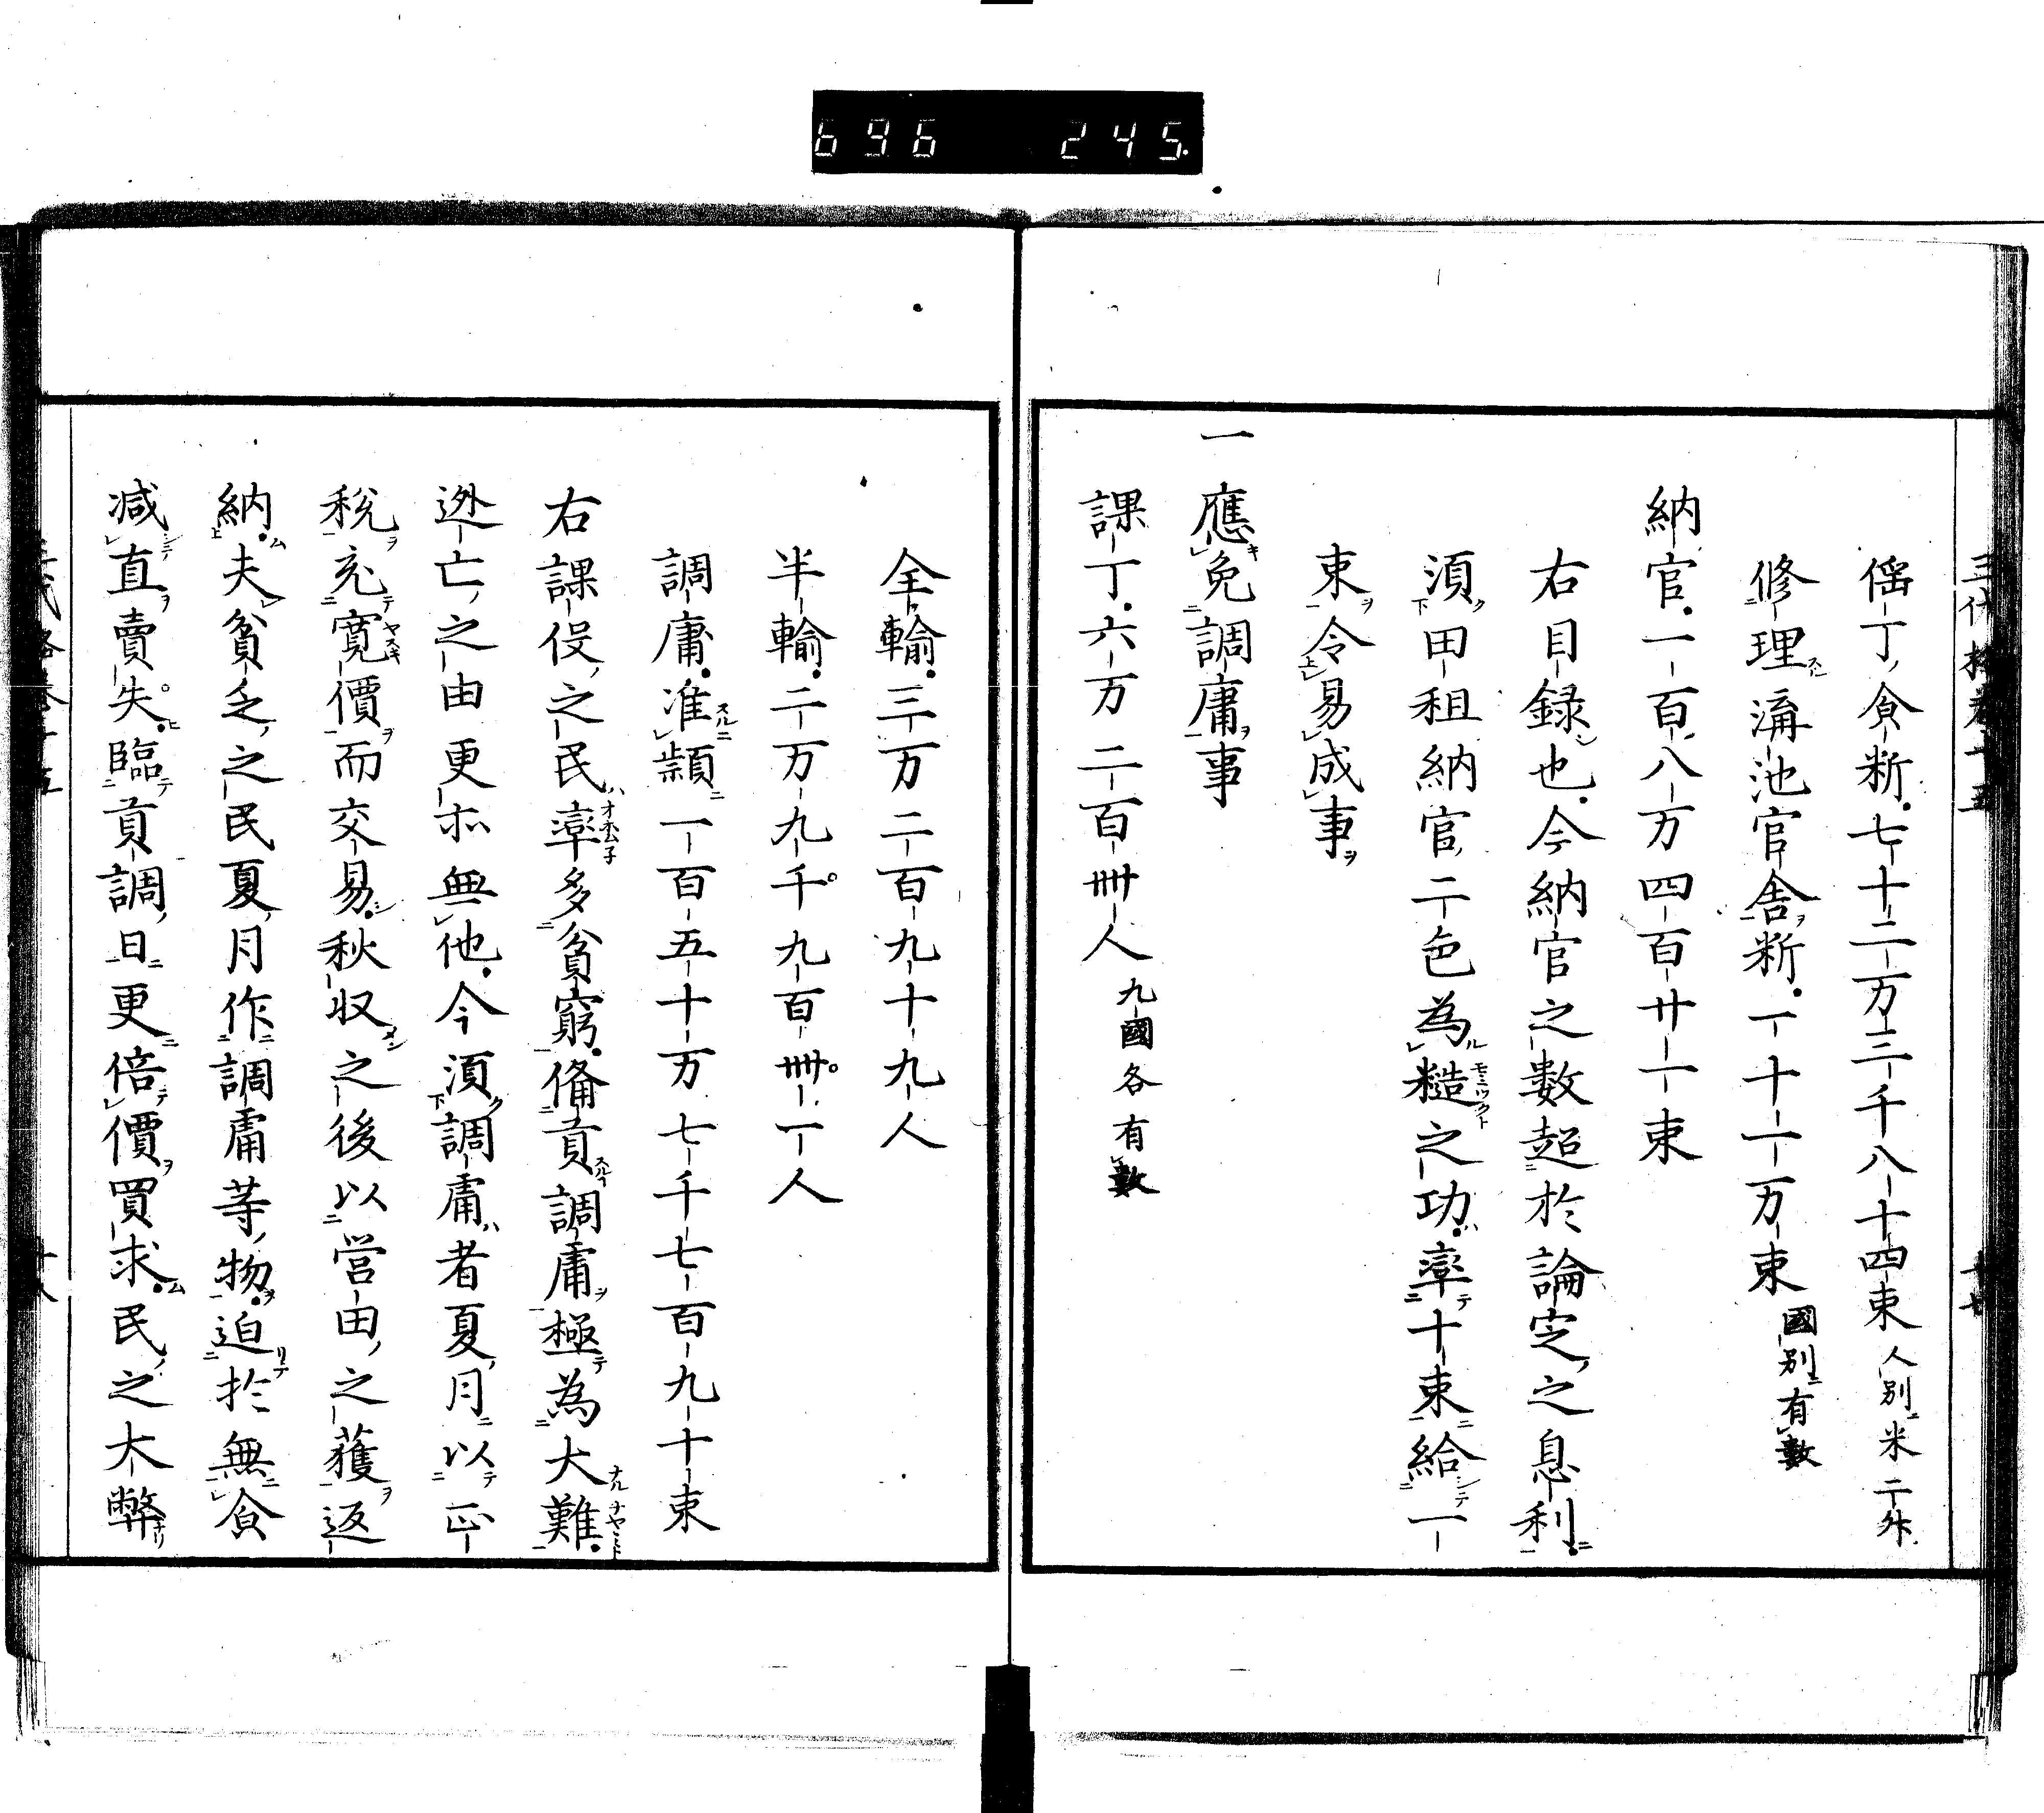 696 245
三代格巻十五
徭丁食斯七十二万三千八十四束 人別米二升
修理溝池官舎斯一十一万束 國別有數
納官一百八万四百廿一束
右目録也今納官之數超於論定之息利
湏田租納官二色為糙之功率十束給一
束令易成事
一應免調庸事
課丁六万二百卌人 九國各有數
全輸三万二百九十九人
半輸二万九千九百卌一人
調庸准頴一百五十万七千七百九十束
右課役之民率多貧窮備貢調庸極為大難
迯亡之由更亦無他今湏調庸者夏月以正
税充寛價而交易秋収之後以営田之獲返
納夫貧乏之民夏月作調庸等物迫於無食
减直賣失臨貢調日更倍價買求民之大弊